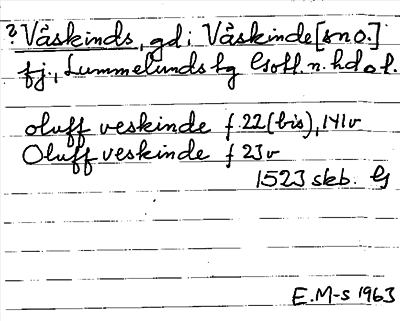 ? Våskinds, gd i Våskinde [sno.]
fj., Lummelunds hg Gotl. n. hd o. l.
oluff veskinde f. 22 (bis), 141v
Oluff veskinde f 23v
1523 skb. G
E.M-s 1963